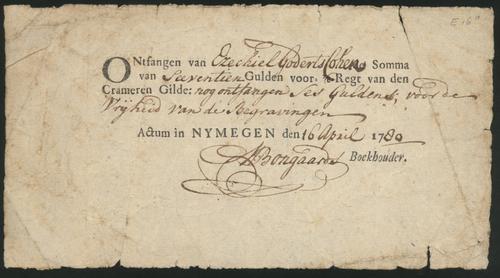 E-16"
ONtfangen van Ezechiel Goderts Cohen de Somma
van Seeventien Gulden voor 't Regt van den
Crameren Gilde: nog ontfangen Ses Guldens, voor de
Vrijheid van de Begravingen
Actum in NYMEGEN den 16 April 1780
Bongaards Boekhouder.